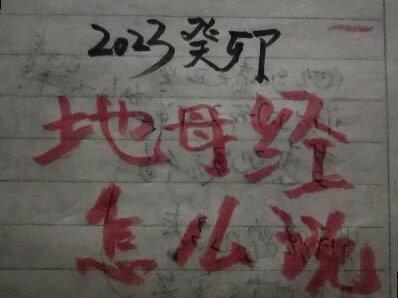 2023癸卯
地母经
怎么说